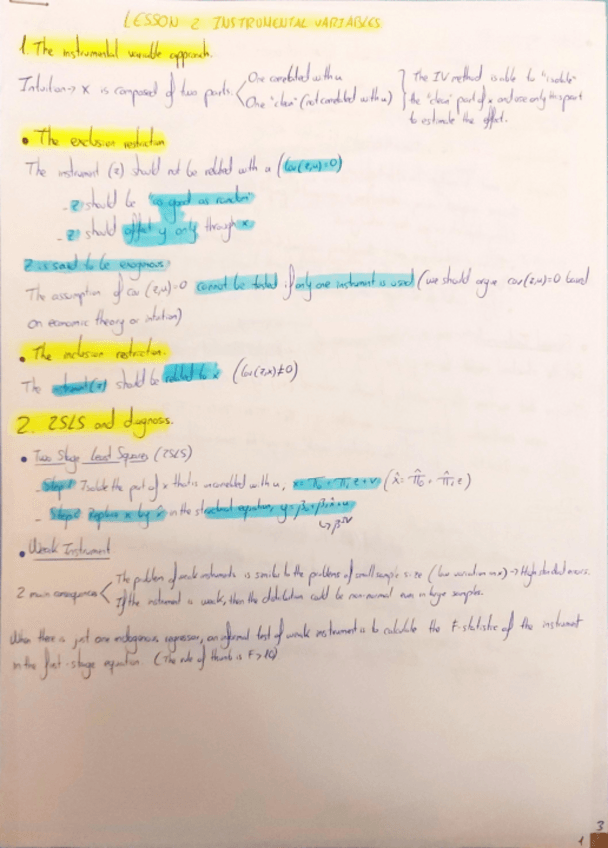 LESSON 2 INSTRUMENTAL VARIABLES
1. The instrumental variable approach.
Intuition → x is composed of two parts. One correlated with u
One "clean" (not correlated with u)
The IV method is able to "isolate"
the "clean" part of x and use only this part
to estimate the effect.
• The exclusion restriction
The instrument (z) should not be related with u (Cov(z,u)=0)
- z should be "as good as random"
- z should affect y only through x
z is said to be exogenous.
The assumption of cov(z,u)=0 cannot be tested if only one instrument is used (we should argue cov(z,u)=0 based
on economic theory or intuition)
• The inclusion restriction.
The instrument (z) should be related to x (Cov(z,x)≠0)
2. 2SLS and diagnosis.
• Two Stage Least Squares (2SLS)
- Step 1 Isolate the part of x that is uncorrelated with u, x = π₀ + π₁z + v (x̂ = π̂₀ + π̂₁z)
- Step 2 Replace x by x̂ in the structural equation, y = β₀ + β₁x̂ + u
↳ β^IV
• Weak Instrument
2 main consequences
The problem of weak instruments is similar to the problems of small sample size (low variation in x) → High standard errors.
If the instrument is weak, then the distribution could be non-normal even in large samples.
When there is just one endogenous regressor, an informal test of weak instrument is to calculate the F-statistic of the instrument
in the first-stage equation (The rule of thumb is F>10)
3
1